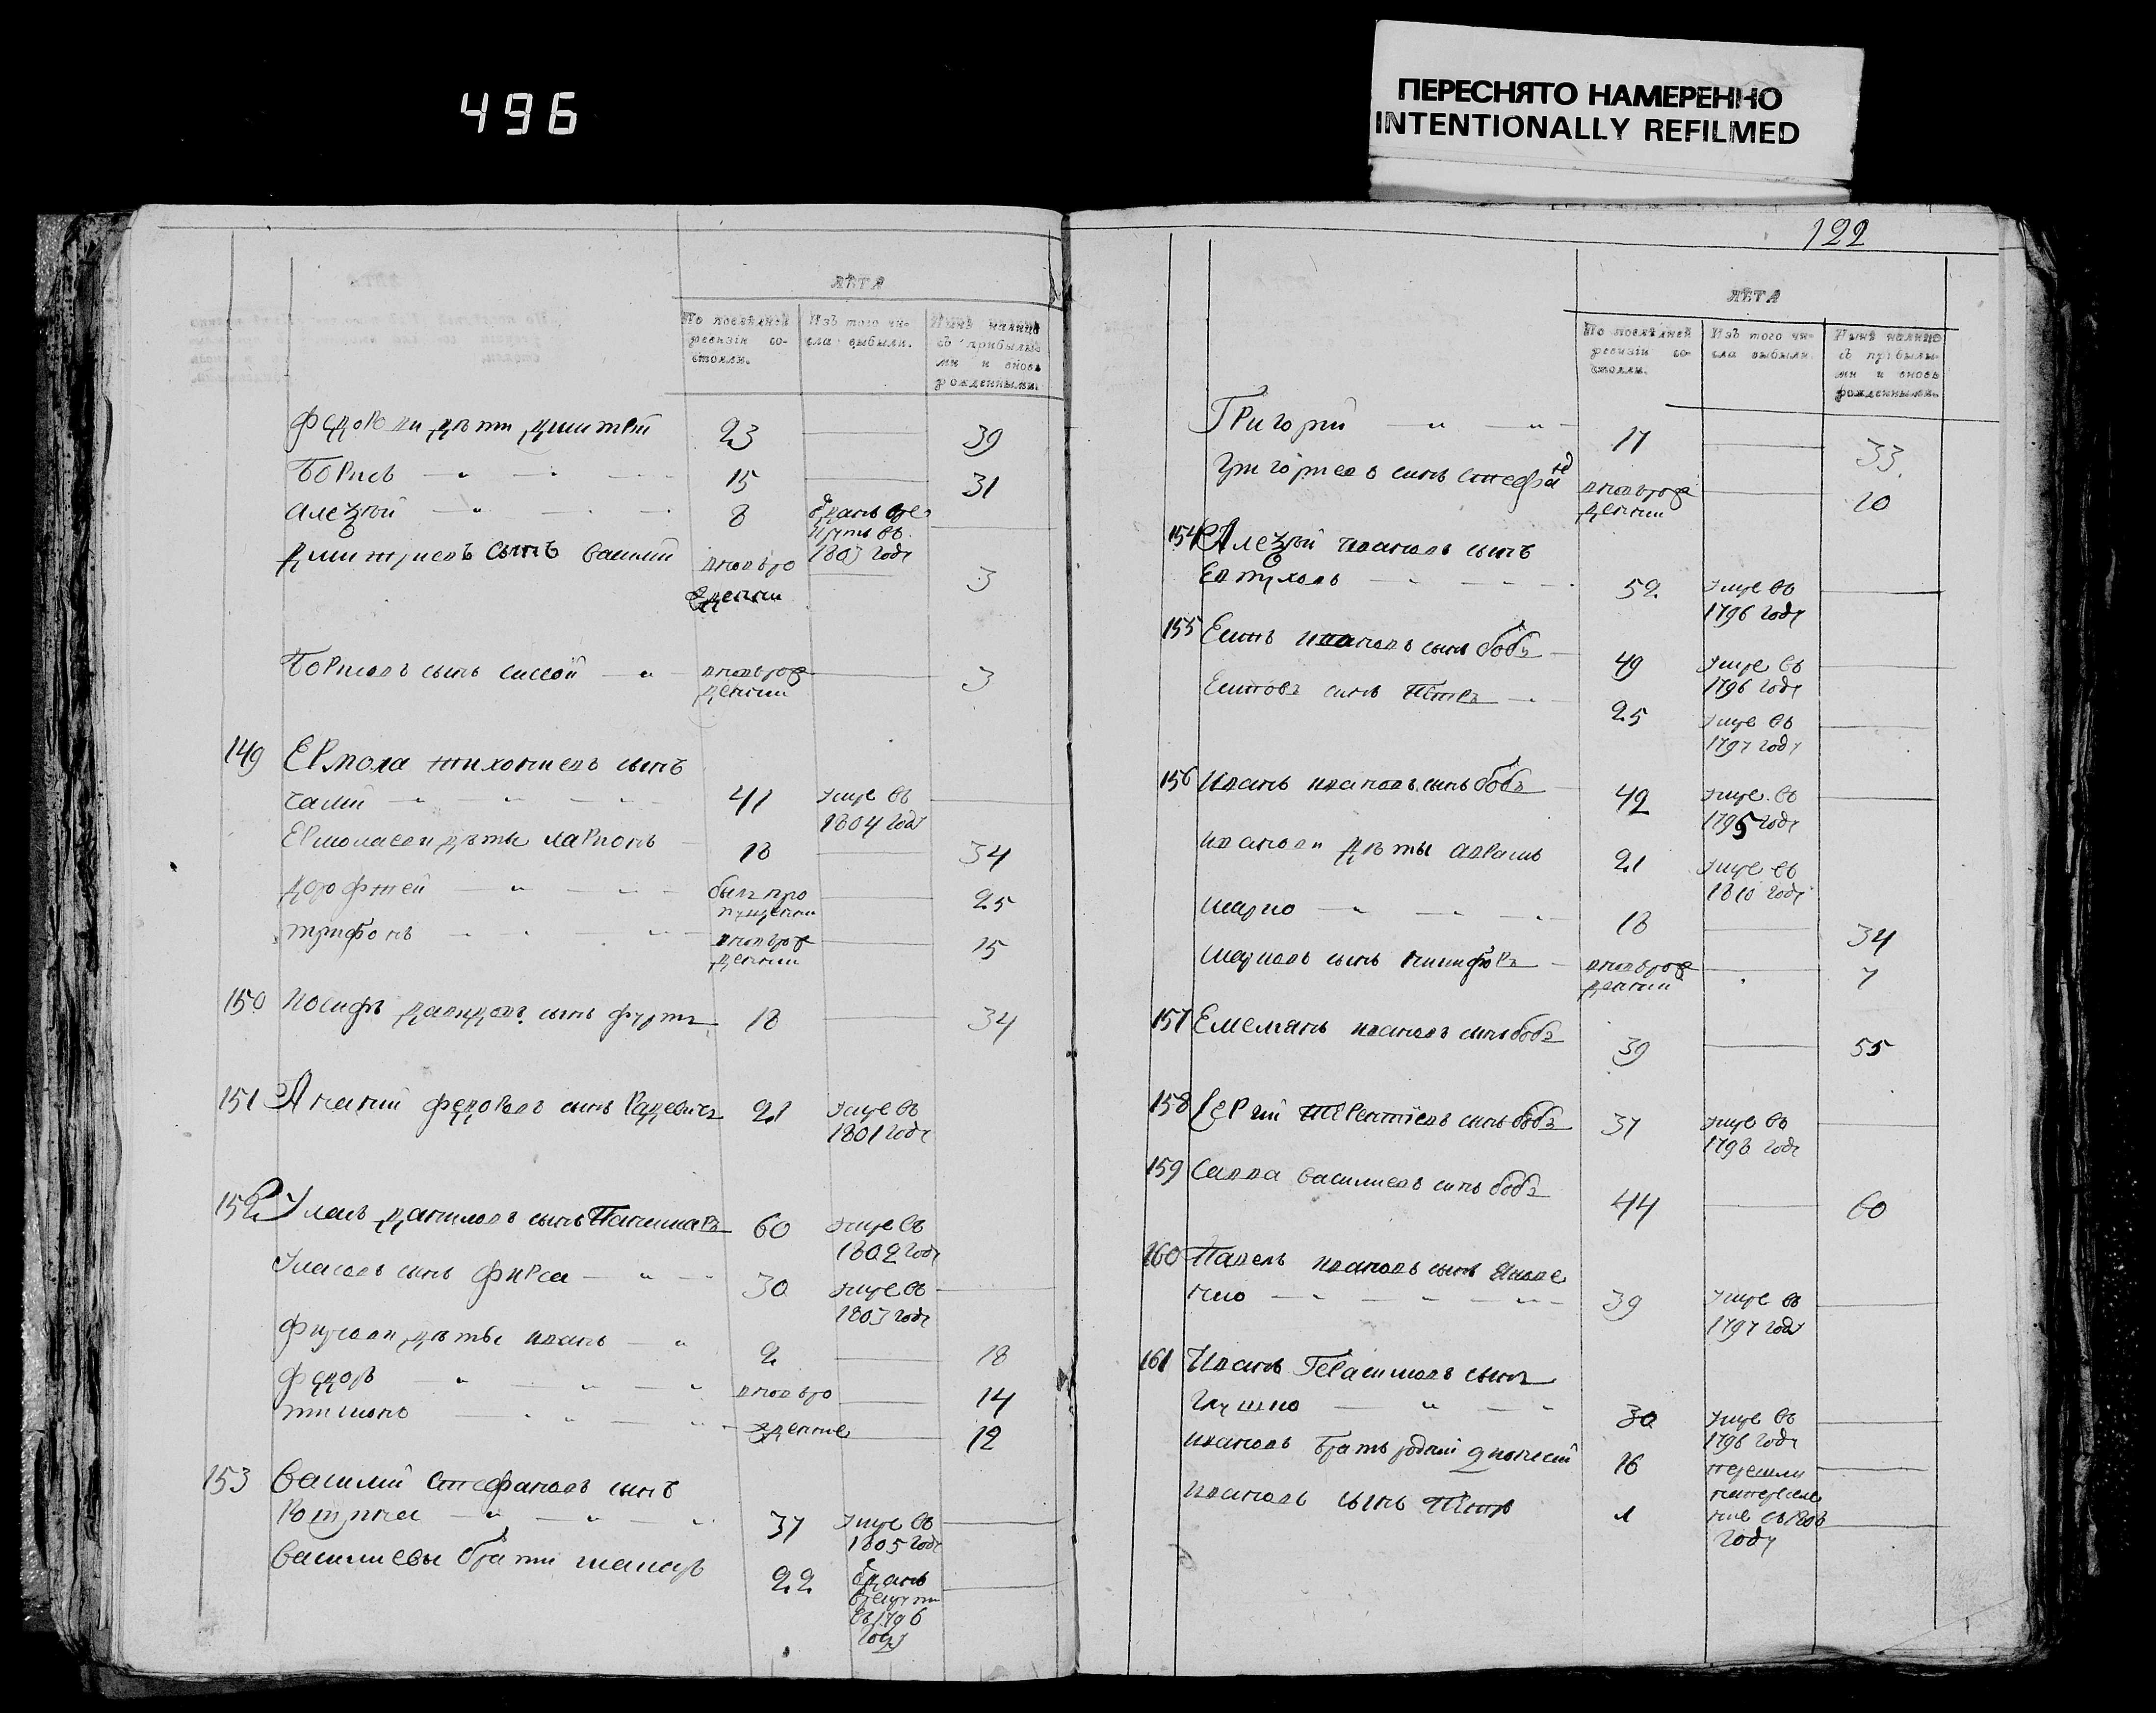 496
ПЕРЕСНЯТО НАМЕРЕННО
INTENTIONALLY REFILMED
ЛѢТА
По послѣдней ревизіи со- стояли.
Изъ того чи- сла выбыли.
Нынѣ налицо съ прибылы- ми и вновь рожденными.
Федоровы дѣти Дмитрей 23 39
Борисъ 15 31
Алезѣй 8 въ 1803 году
Дмитриевъ сынъ Василий вновьро жденни 3
Борисовъ сынъ Сисой вновьрож денни 3
149 Ермола Тихониевъ сынъ
41 умре въ 1804 году
Ермолаеви дѣты Ларионъ 18 34
Дорофтей былъ про пущенни 25
Трифонъ вновьрож денни 15
150 Иосифъ Давидовъ сынъ 18 34
151 Ананий Федоровъ сынъ Радевичъ 21 умре въ 1801 году
152 Улас Даниловъ сынъ 60 умре въ 1802 году
Уласовъ сынъ Фирса 30 умре въ 1803 году
Фирсови дѣты Иванъ 2 18
Федоръ вновьро 14
Тишонъ ждение 12
153 Василий Стефановъ сынъ
37 умре въ 1805 году
Василиевы брати Макаръ 22 въ 1796 году
122
ЛѢТА
По послѣдней ревизіи со- стояли.
Изъ того чи- сла выбыли.
Нынѣ налицо съ прибылы- ми и вновь рожденными.
Григорий 17 33
Григориевъ сынъ Стефа вновьрож денни 10
154 Алезѣй Ивановъ сынъ
Евтуховъ 52 умре въ 1796 году
155 Ивановъ сынъ Бобъ 49 умре въ 1796 году
сынъ Петръ 25 умре въ 1797 году
156 Иванъ Ивановъ сынъ Бобъ 42 умре въ 1795 году
Иванови дѣты Аврамъ 21 умре въ 1810 году
Марко 18 34
Марковъ сынъ Никифоръ вновьрож денни 7
157 Емельянъ Ивановъ сынъ Бобъ 39 55
158 Сергий Терентиевъ сынъ Бобъ 37 умре въ 1798 году
159 Савва Василиевъ сынъ Бобъ 44 60
160 Павелъ Ивановъ сынъ
39 умре въ 1797 году
161 Иванъ Герасимовъ сынъ
Глушко 30 умре въ 1796 году
Ивановъ братъ родний 16 перешли
Ивановъ сынъ Петръ 1 году